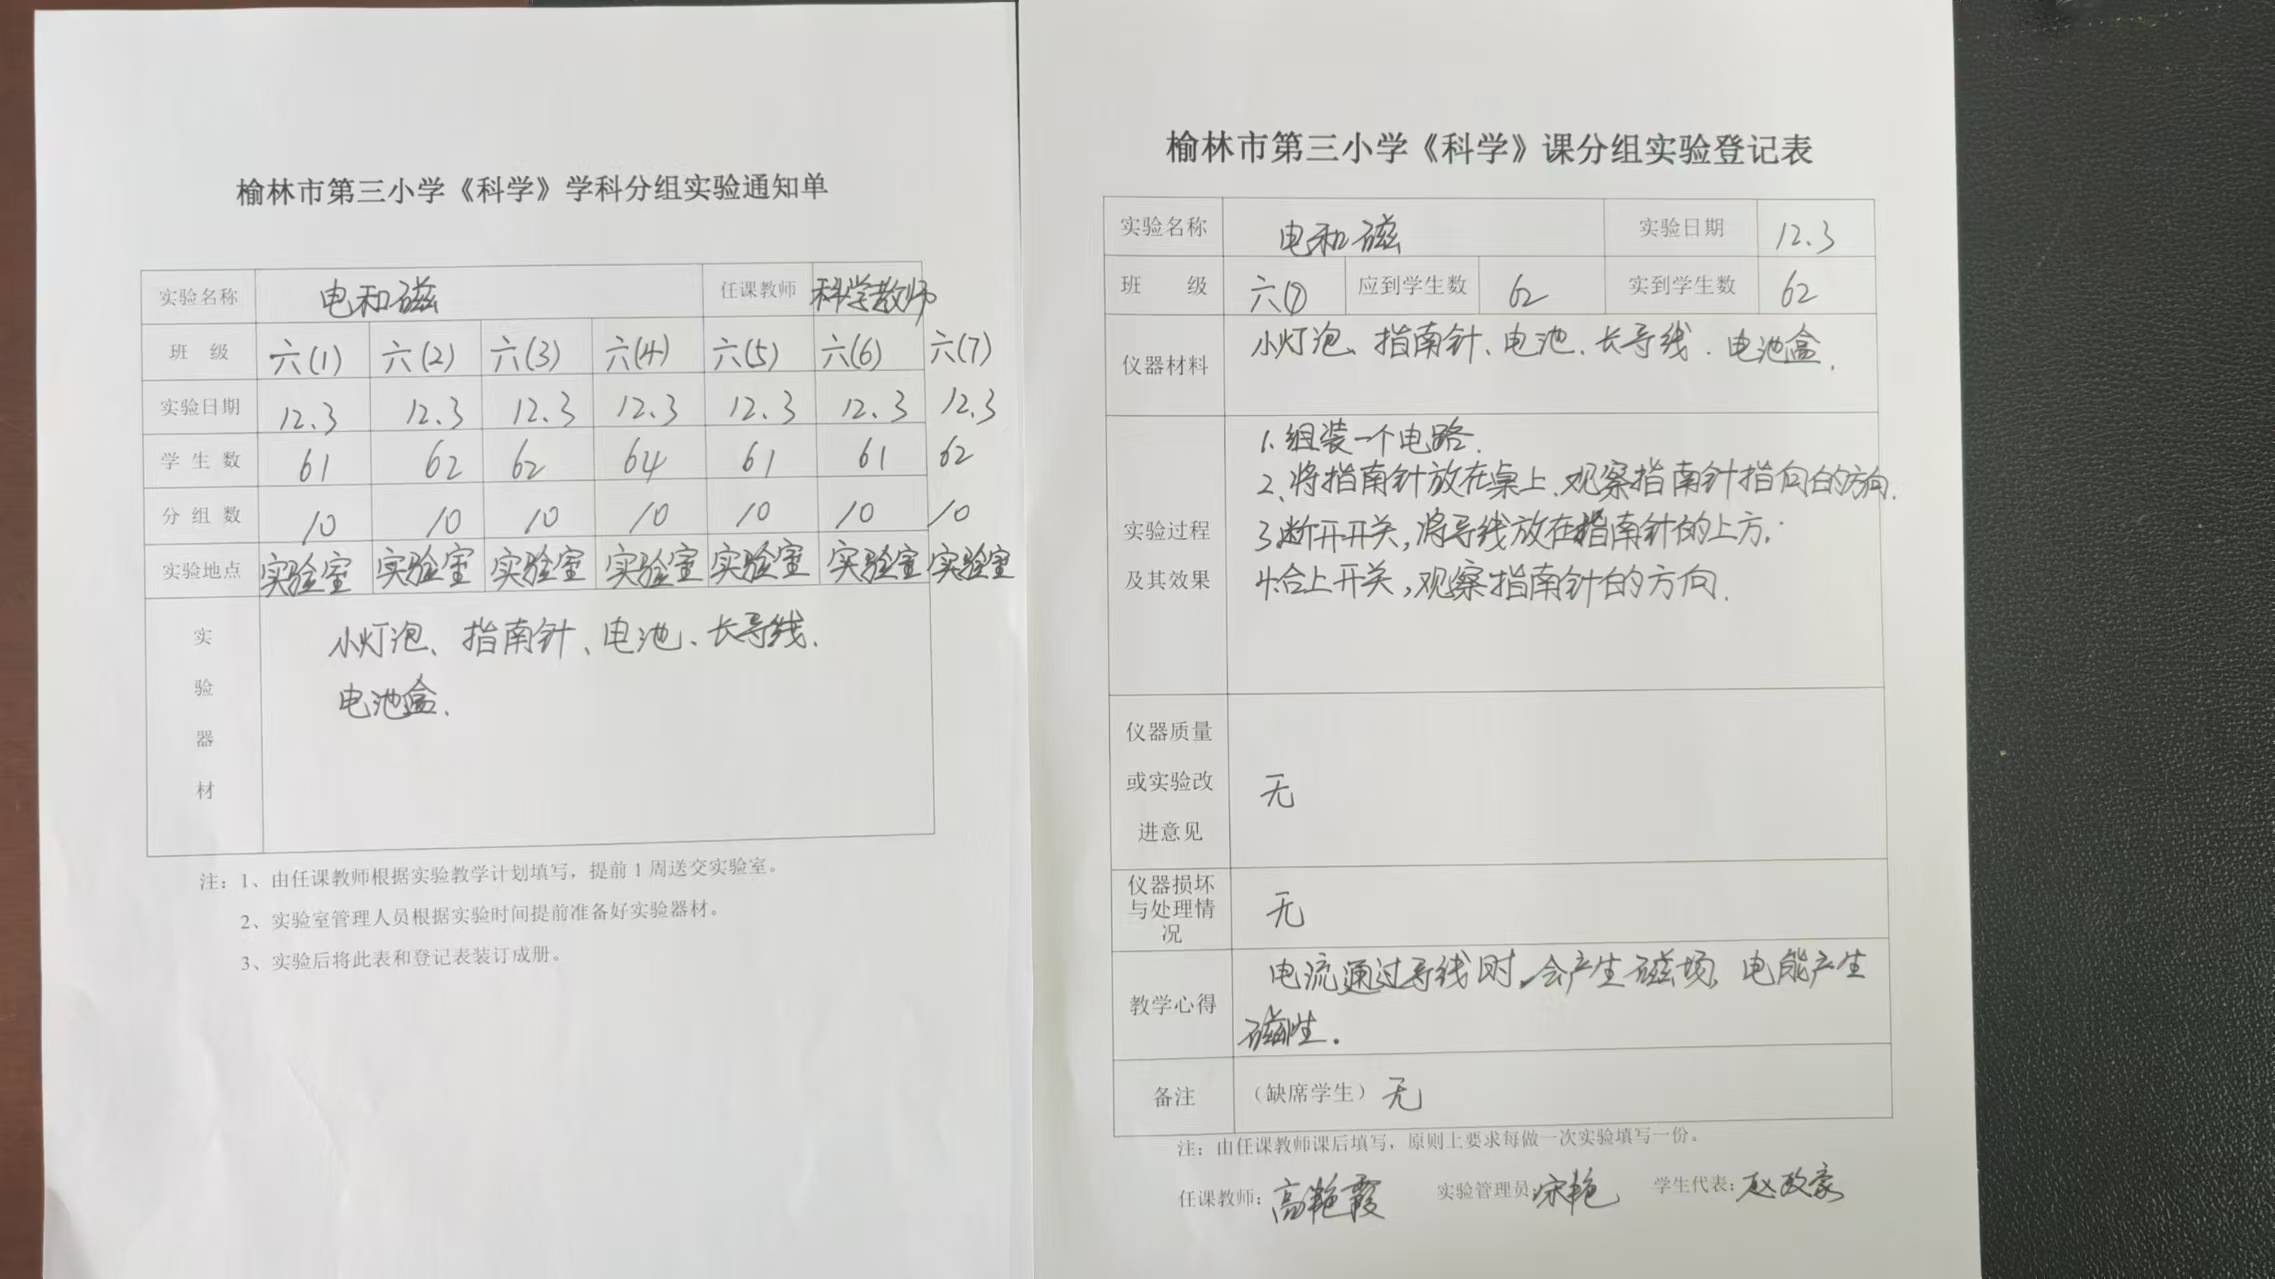 榆林市第三小学《科学》学科分组实验通知单
实验名称 电和磁 任课教师 科学教师
班 级 六(1) 六(2) 六(3) 六(4) 六(5) 六(6) 六(7)
实验日期 12.3 12.3 12.3 12.3 12.3 12.3 12.3
学 生 数 61 62 62 64 61 61 62
分 组 数 10 10 10 10 10 10 10
实验地点 实验室 实验室 实验室 实验室 实验室 实验室 实验室
实
验
器
材
小灯泡、指南针、电池、长导线、
电池盒.
注：1、由任课教师根据实验教学计划填写，提前1周送交实验室。
2、实验室管理人员根据实验时间提前准备好实验器材。
3、实验后将此表和登记表装订成册。
榆林市第三小学《科学》课分组实验登记表
实验名称 电和磁 实验日期 12.3
班 级 六(7) 应到学生数 62 实到学生数 62
仪器材料 小灯泡、指南针、电池、长导线、电池盒.
实验过程
及其效果
1.组装一个电路.
2、将指南针放在桌上、观察指南针指向的方向.
3.断开开关,将导线放在指南针的上方.
4.合上开关,观察指南针的方向.
仪器质量
或实验改
进意见
无
仪器损坏
与处理情
况
无
教学心得
电流通过导线时,会产生磁场,电能产生
磁性.
备注 （缺席学生）无
注：由任课教师课后填写，原则上要求每做一次实验填写一份。
任课教师：高艳霞 实验管理员：宋艳 学生代表：赵政豪